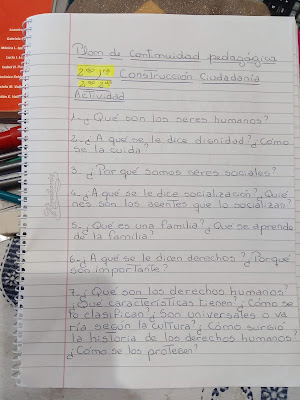 Plan de continuidad pedagógica
2do 1ra Construcción Ciudadanía
2do 2da
Actividad
1-¿Qué son los seres humanos?
2-¿A qué se le dice dignidad? ¿Cómo
se la cuida?
3. ¿Por qué somos seres sociales?
4-¿A qué se le dice socialización? ¿Quié
nes son los agentes que lo socializan?
5-¿Qué es una familia? ¿Qué se aprende
de la familia?
6-¿A qué se le dicen derechos? ¿Porqué
son importante?
7-¿Qué son los derechos humanos?
¿Qué características tienen? ¿Cómo se
lo clasifican? ¿Son universales o va
ría según la cultura? ¿Cómo surgió
la historia de los derechos humanos?
¿Cómo se los protegen?